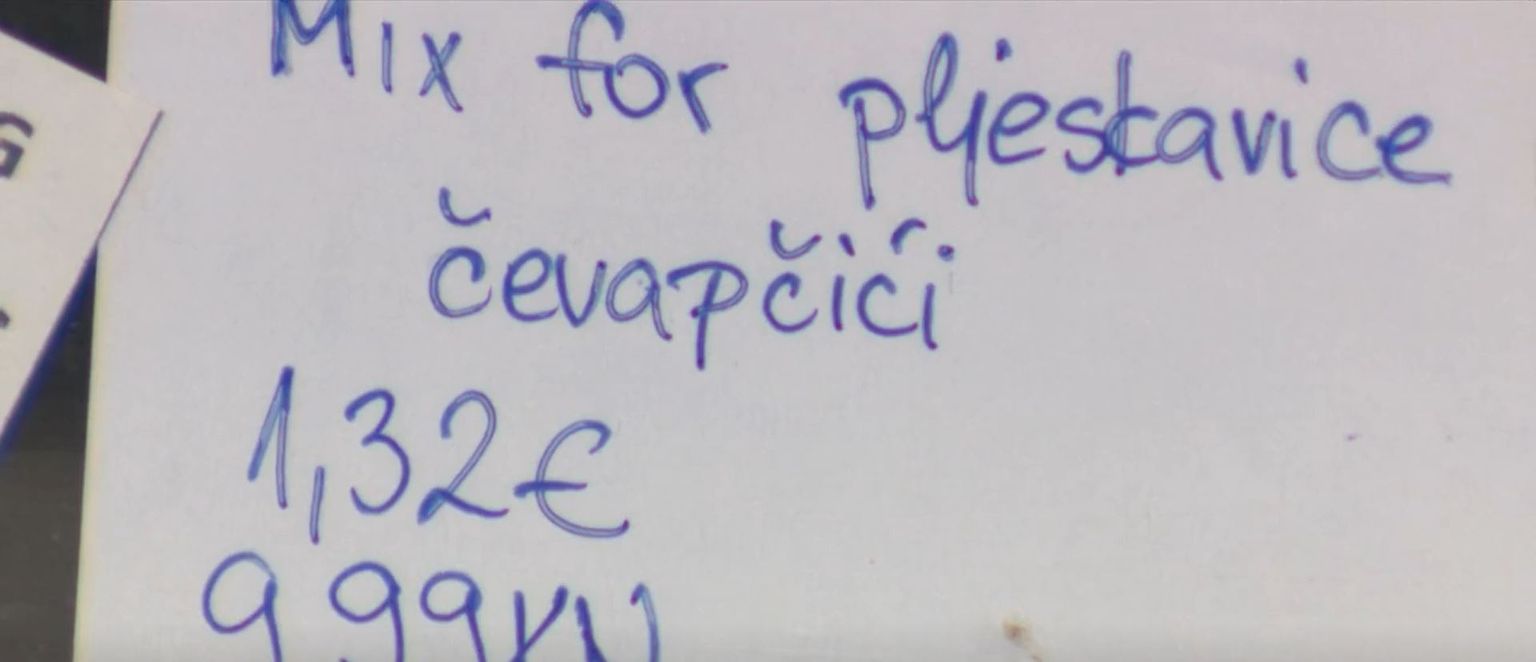 Mix for pljeskavice
čevapčići
1,32€
9,99KN
G